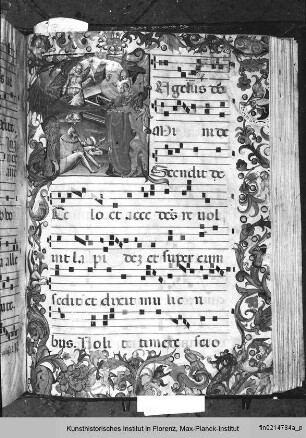 Ngelus do
Mi ni de
Scendit de
Ce lo et acce dēs re vol
uit la pi dez et super eum
sedit et dixit mu lieri
bus. Noli te timere scio
Kunsthistorisches Institut in Florenz, Max-Planck-Institut
fln0214784a_p